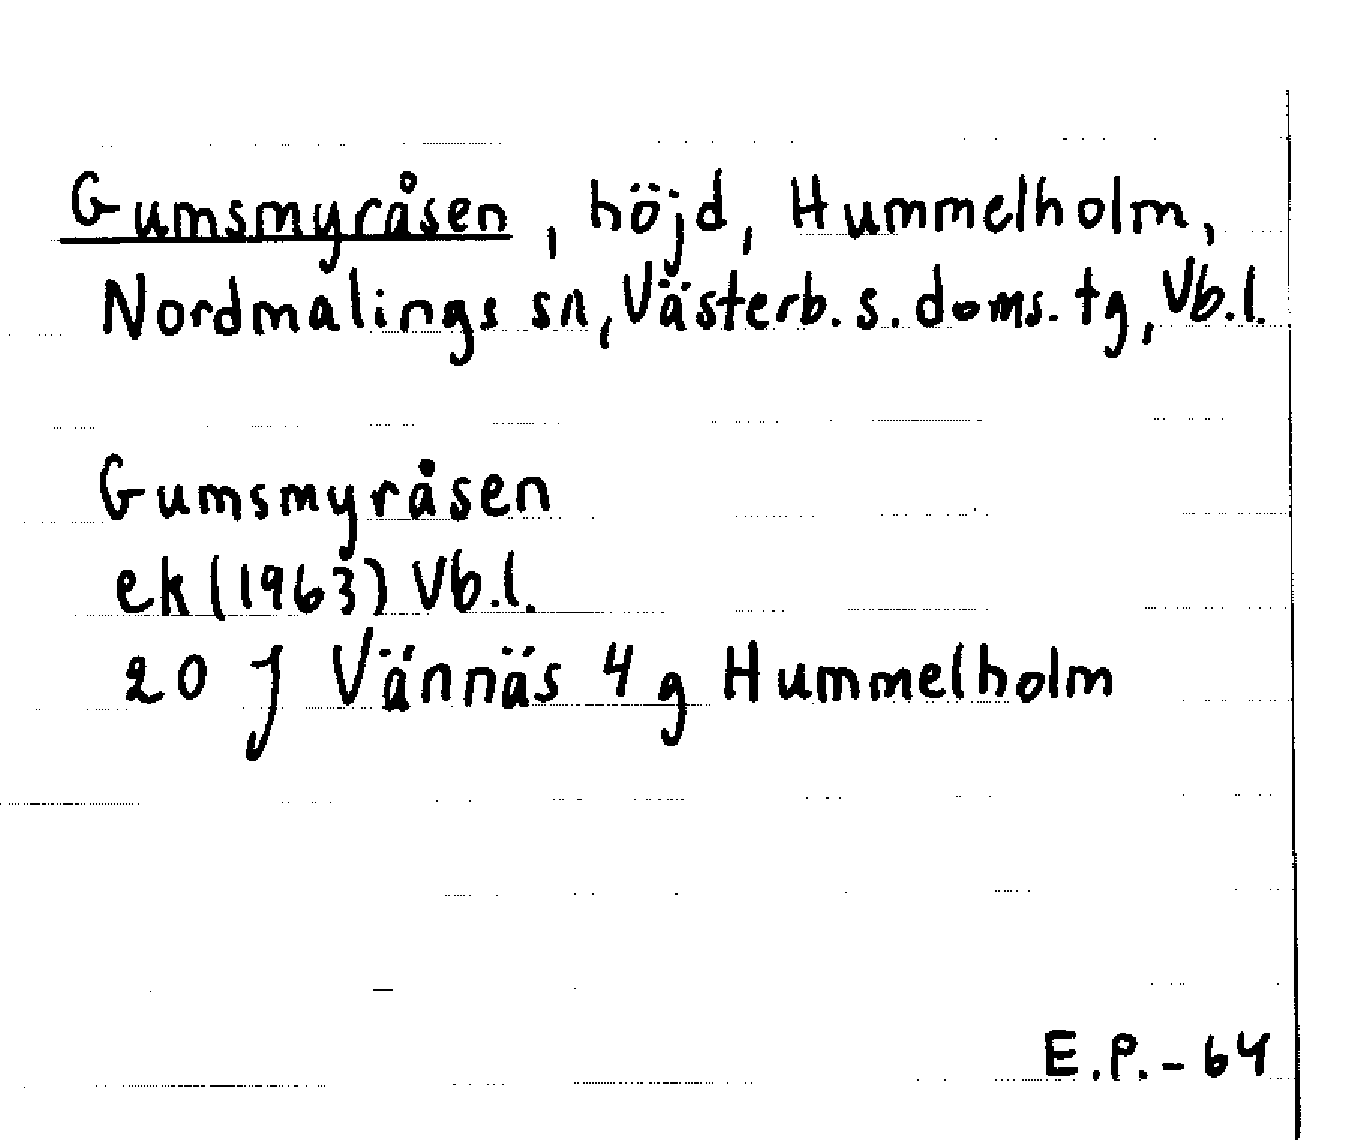 Gumsmyråsen, höjd, Hummelholm,
Nordmalings sn, Västerb. s. doms. tg, Vb.l.
Gumsmyråsen
ek (1963) Vb.l.
20 J Vännäs 4 g Hummelholm
E.P. - 64